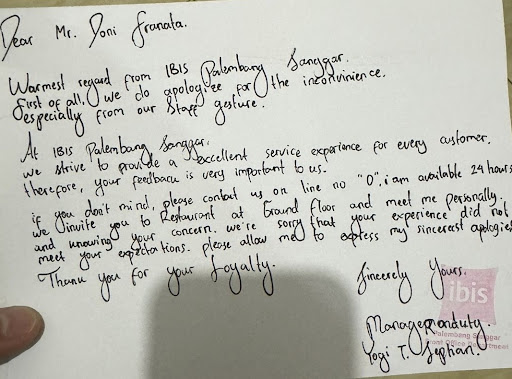 Dear Mr. Doni Franata.
Warmest regard from IBIS Palembang Sanggar.
first of all, we do apologize for the inconvinience.
especially from our Staff gesture.
At IBIS Palembang Sanggar.
we strive to provide a excellent service experience for every customer.
therefore, your feedback is very important to us.
if you don't mind, please contact us on line no "0". i am available 24 hours
we invite you to Restaurant at Ground Floor and meet me personally.
and knowing your concern. we're sorry that your experience did not
meet your expectations. please allow me to express my sincerest apologies
Thank you for your Loyalty.
Sincerely Yours.
ibis
Palembang Sanggar
Front Office Department
Manager on duty.
Yogi T. Septian.